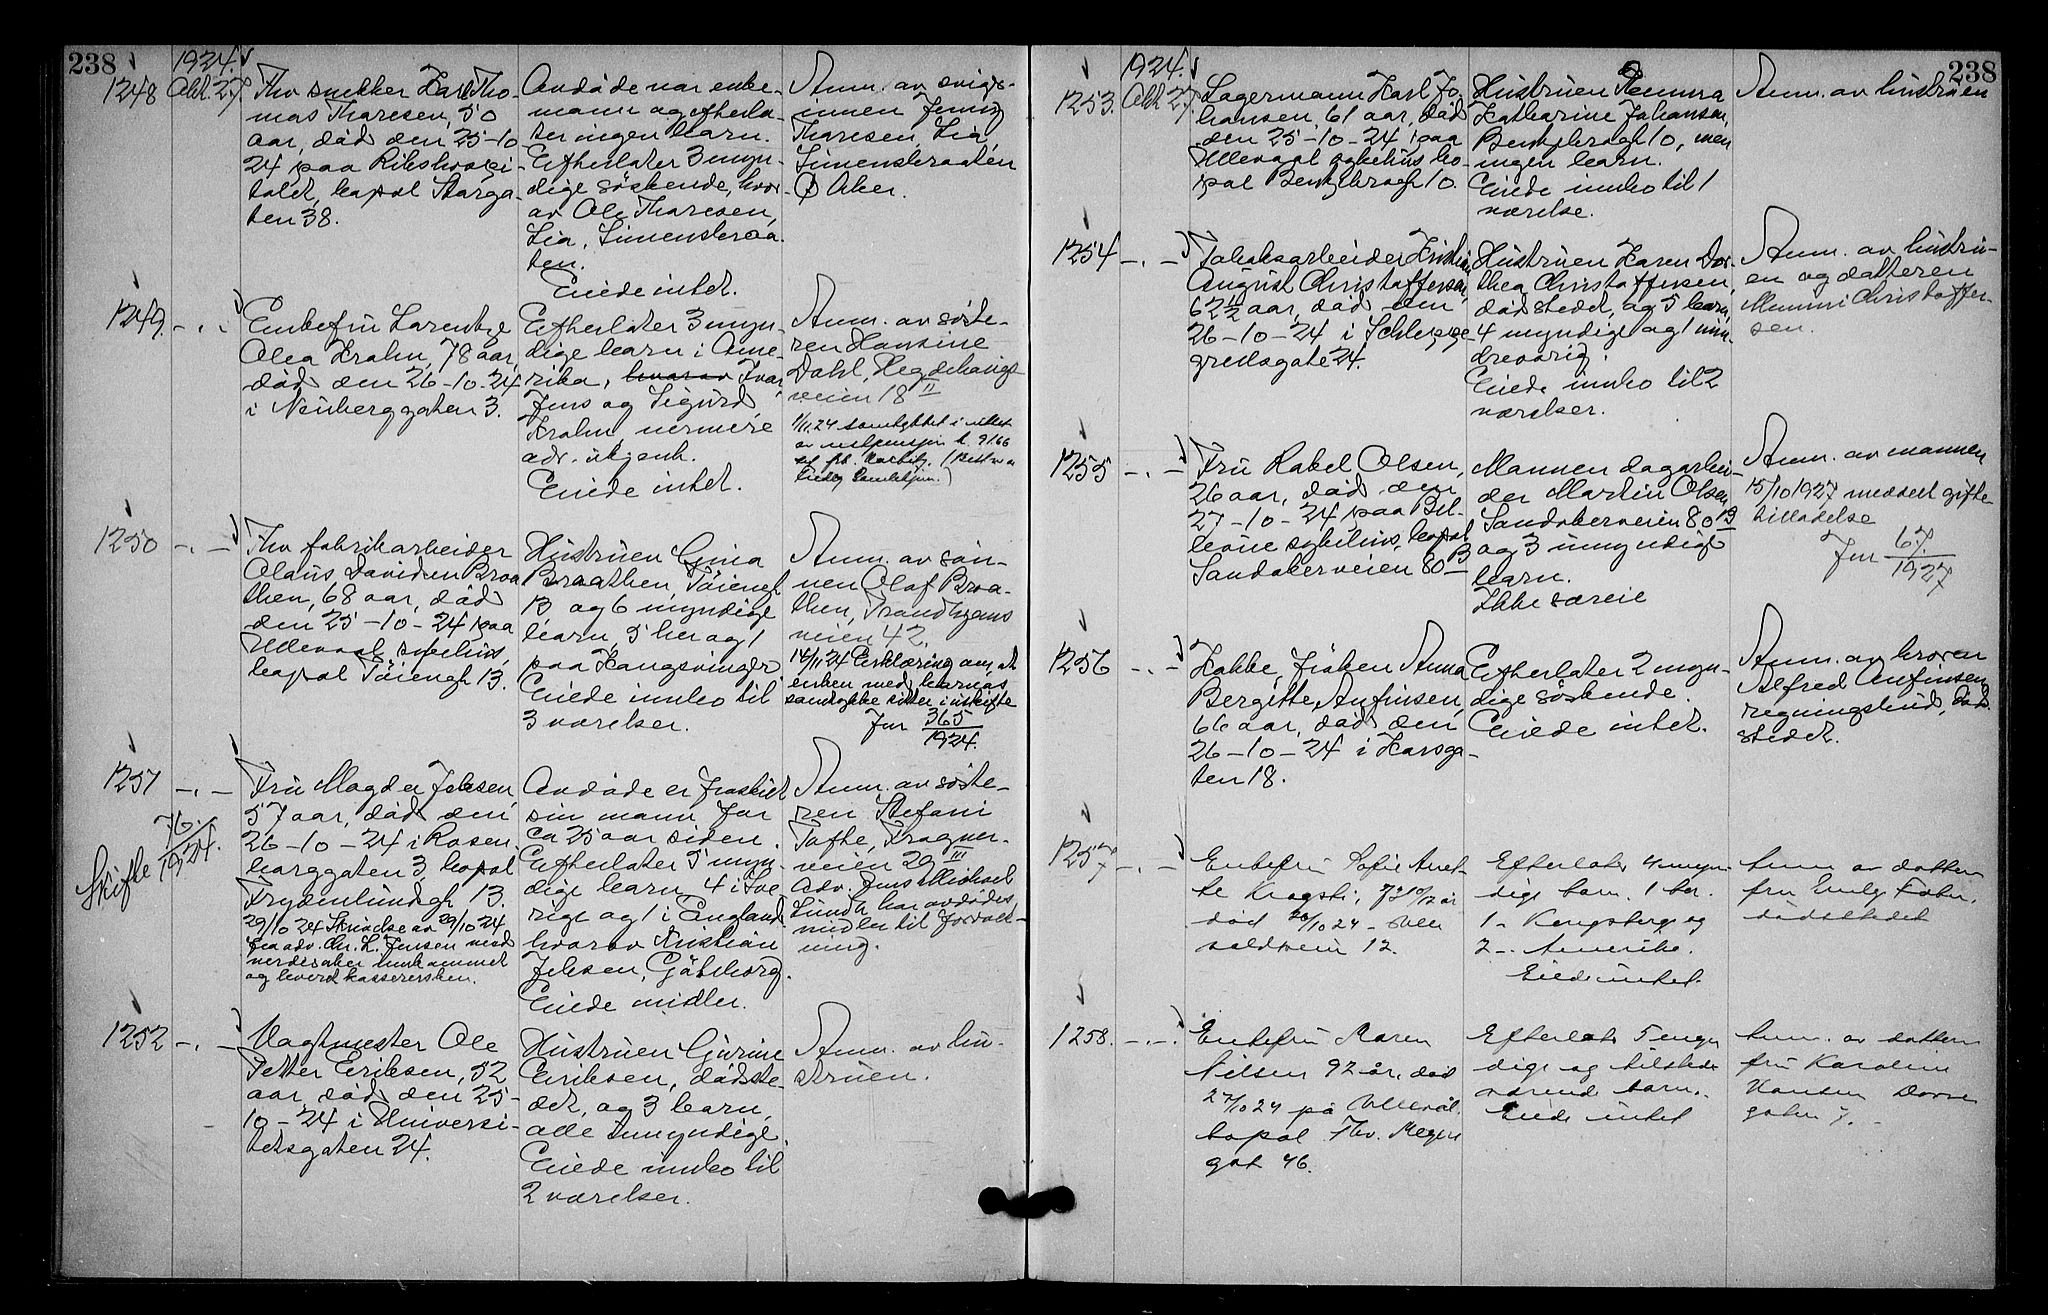 238
1924.
1248 Okt. 27.
Fhv snekker Karl Tho-
mas Thoresen, 50
aar, död den 25-10
24 paa Rikshospi-
talet, bopæl Storga-
ten 38.
Avdöde var enke-
mann og efterla-
ter ingen barn.
Efterlater 3 myn-
dige söskende, hvor-
av Ole Thoresen,
Lia, Simensbraa-
ten.
Eiede intet.
Anm. av sviger-
innen Jenny
Thoresen, Lia,
Simensbraaten
Ø Aker.
1249. -.-
Enkefru Lorentze
Olea Krohn, 78 aar,
död den 26-10-24
i Neuberggaten 3.
Efterlater 3 myn-
dige barn i Ame-
rika, hvorav Ivar,
Jens og Sigurd
Krohn, nermere
adr. ukjent.
Eiede intet.
Anm. av söste-
ren Hansine
Dahl, Hegdehaugs-
veien 18 II
1/11.24 samtykket i uttak
av restpensjon k. 91.66
1250 -.-
Fhv fabrikarbeider
Olaus Davidsen Braa
then, 68 aar, död
den 25-10-24 paa
Ullevaal sykehus,
bopæl Töiengt 13.
Hustruen Gina
Braathen, Töiengt
13 og 6 myndige
barn, 5 her og 1
paa Kongsvinger
Eiede innbo til
3 værelser.
Anm. av sön-
nen Olaf Braa-
then, Trondhjems
veien 42.
14/11 24 Erklæring om, at
enken med barnas
samtykke sitter i uskifte
Jnr 365/1924.
1251 -.-
Skifte 76./1924.
Fru Magda Jebsen,
57 aar, död den
26-10-24 i Rosen-
borggaten 3, bopæl
Frydenlundsgt 13.
29/10 24 Skrivelse av 29/10 24
fra adv. Chr. L. Jensen med
verdisaker innkommet
og levert kassereren.
Avdöde er fraskilt
sin mann for
ca 25 aar siden.
Efterlater 5 myn-
dige barn, 4 i Sve
rige og 1 i England
hvorav Kristian
Jebsen, Göteborg.
Eiede midler.
Anm. av söste-
ren Stefani
Tofte, Frogner-
veien 29 III
Adv. Jens Michael
Lundh har avdödes
midler til forvalt-
ning.
1252 -.-
Vagtmester Ole
Petter Eriksen, 52
aar, död den 25-
10-24 i Universi-
tetsgaten 24.
Hustruen Gurine
Eriksen, dödste-
det, og 3 barn,
alle umyndige.
Eiede innbo til
2 værelser.
Anm. av hu-
struen.
238
1924.
1253. Okt 27.
Lagermann Karl Jo-
hansen, 61 aar, död
den 25-10-24 paa
Ullevaal sykehus bo-
pæl Bentsebrogt 10.
Hustruen Gemma
Katharine Johansen,
Bentsebrogt 10, men
ingen barn.
Eiede innbo til 1
værelse.
Anm. av hustruen
1254 -.-
Tobaksarbeider Kristian
August Christoffersen,
62½ aar, död den
26-10-24 i Schleppe
grellsgate 24.
Hustruen Karen Dor-
thea Christoffersen,
dödstedet, og 5 barn,
4 myndige og 1 min-
dreaarig.
Eiede innbo til 2
værelser.
Anm. av hustru-
en og datteren
Mimmi Christoffer-
sen.
1255 -.-
Fru Rakel Olsen,
26 aar, död den
27-10-24 paa Bet-
leone sykehus, bopæl
Sandakerveien 80 B
Mannen dagarbei-
der Martin Olsen
Sandakerveien 80 B
og 3 umyndige
barn.
Ikke særeie
Anm. av mannen
15/10 1927 meddelt gifte-
tilladelse
Jnr 67./1927
1256 -.-
Kokke, fröken Anna
Bergitte Anfinsen,
66 aar, död den
26-10-24 i Korsga-
ten 18.
Efterlater 2 myn-
dige söskende.
Eiede intet.
Anm. av broren
Alfred Anfinsen,
regningsbud, död-
stedet.
1257 -.-
Enkefru Sofie Anet-
te Krogsti, 72 10/12 år
död 26/10 24 - Ulle
valdsvein 12.
Efterlater 4 myn-
dige barn. 1 her.
1 - Kongsberg og
2 -. Amerika.
Eiede intet.
Anm. av datteren
fru Emly Faber,
dödstedet
1258. -.-.
Enkefru Maren
Nilsen 92 år, död
27/10 24 på Ullevål.
bopæl Thv. Meyers
gat 46.
Efterlater 5 myn
dige og tilstede
værende barn.
Eiede intet
Anm. av datteren
fru Karoline
Hansen Dovre
gaten 7.